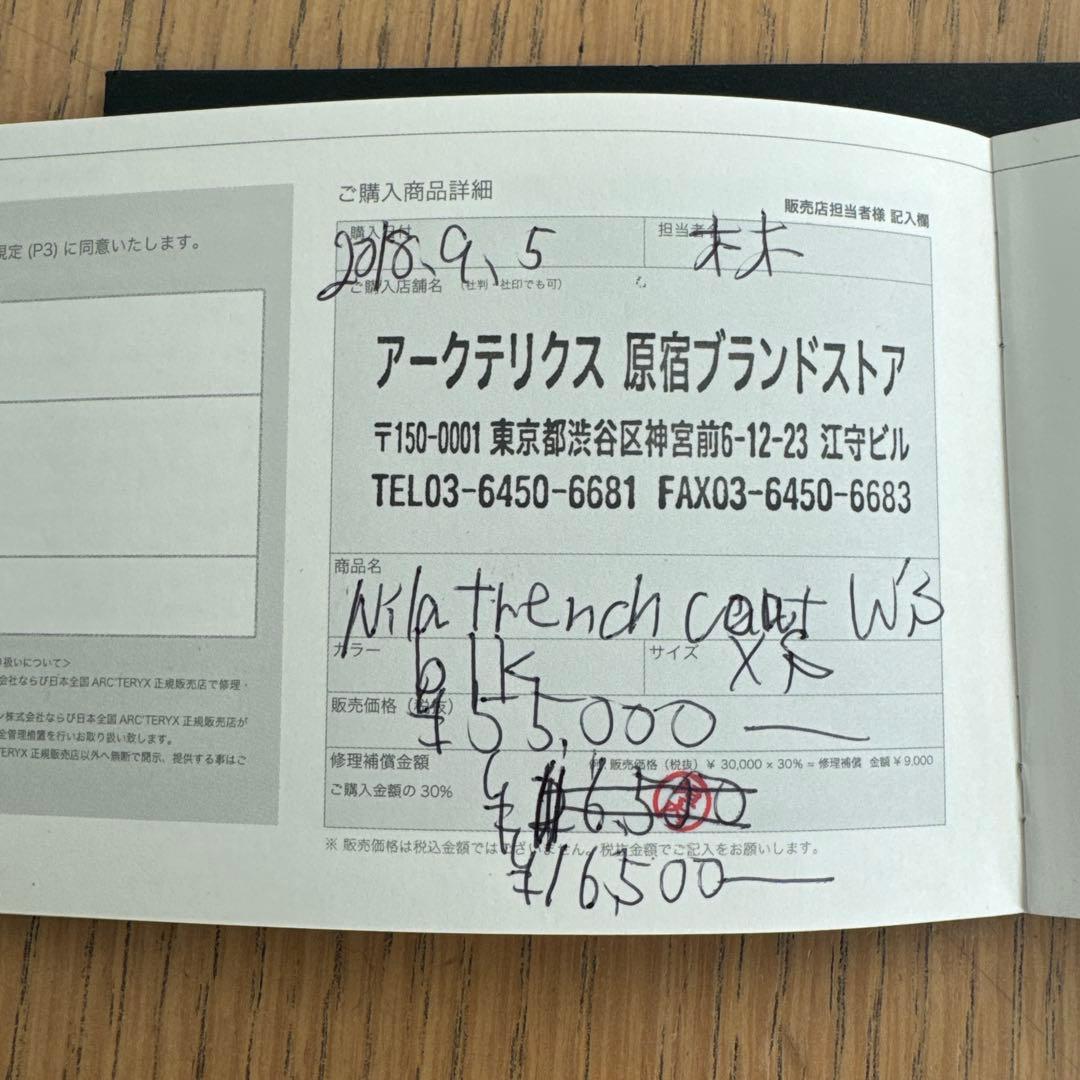 規定 (P3) に同意いたします。
り扱いについて＞
会社ならび日本全国 ARC'TERYX 正規販売店で修理・
ン株式会社ならび日本全国 ARC'TERYX 正規販売店が
金管理措置を行いお取り扱い致します。
TERYX 正規販売店以外へ無断で開示、提供する事はご
ご購入商品詳細
販売店担当者様 記入欄
購入日付
2018、9、5
担当者名
林
ご購入店舗名 (社判・社印でも可)
アークテリクス 原宿ブランドストア
〒150-0001 東京都渋谷区神宮前6-12-23 江守ビル
TEL03-6450-6681 FAX03-6450-6683
商品名
Nila trench coat W's
カラー
blk
サイズ
XS
販売価格（税抜）
¥55,000
修理補償金額
例：販売価格（税抜）¥ 30,000 x 30% = 修理補償 金額 ¥ 9,000
ご購入金額の 30%
6,500
※ 販売価格は税込金額ではございません。税抜金額でご記入をお願いします。
¥16,500